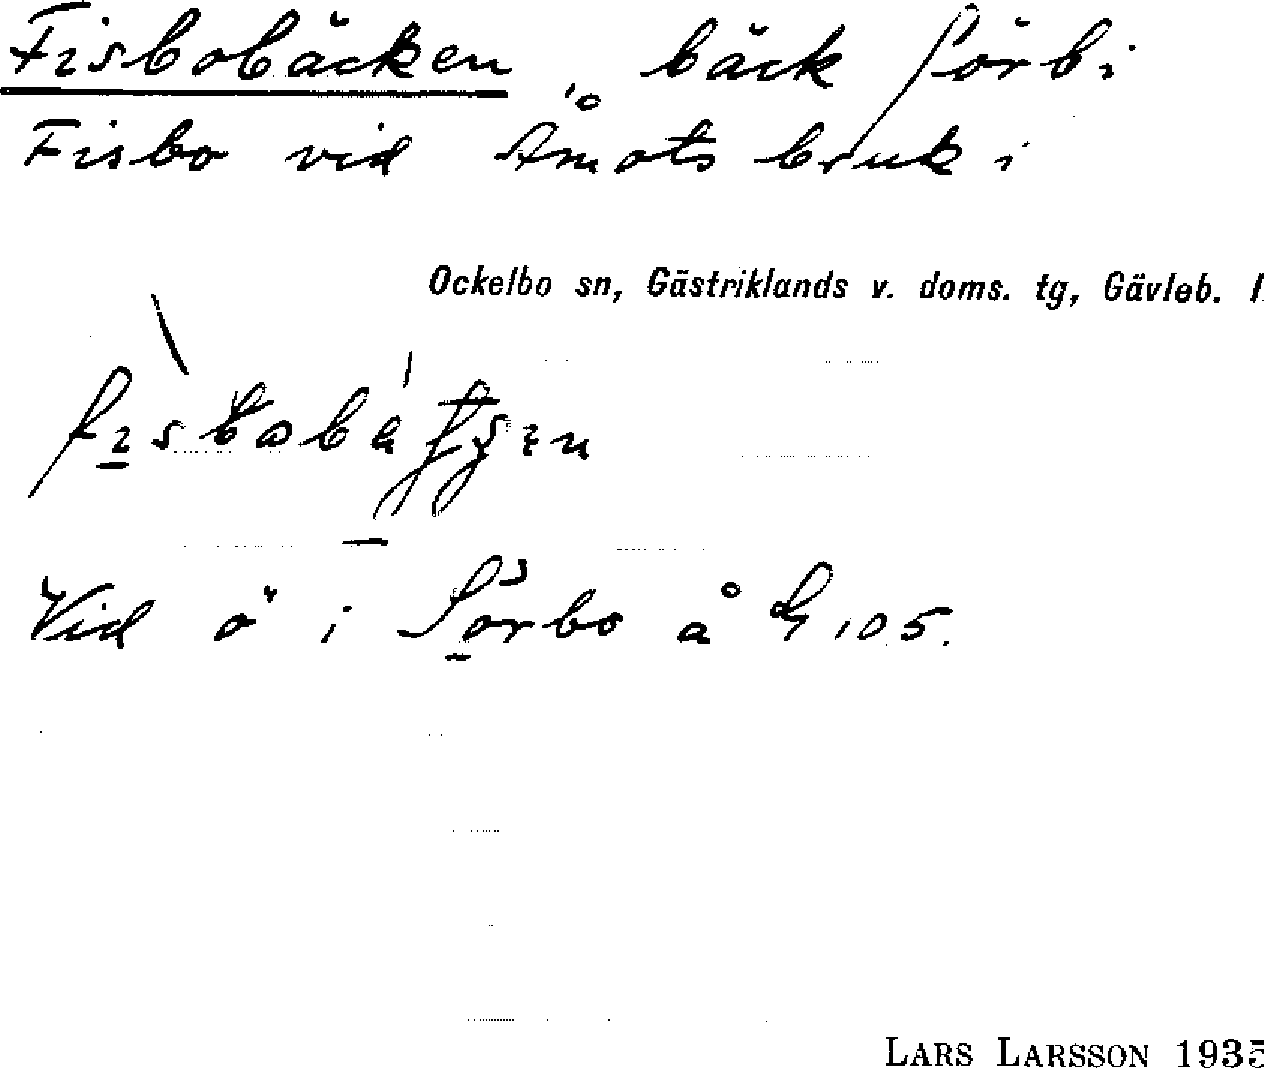 Fisbobäcken, bäck förbi
Fisbo vid Åmots bruk i
Ockelbo sn, Gästriklands v. doms. tg, Gävleb. l
Vid ö i Sörbo å G 105.
LARS LARSSON 1935